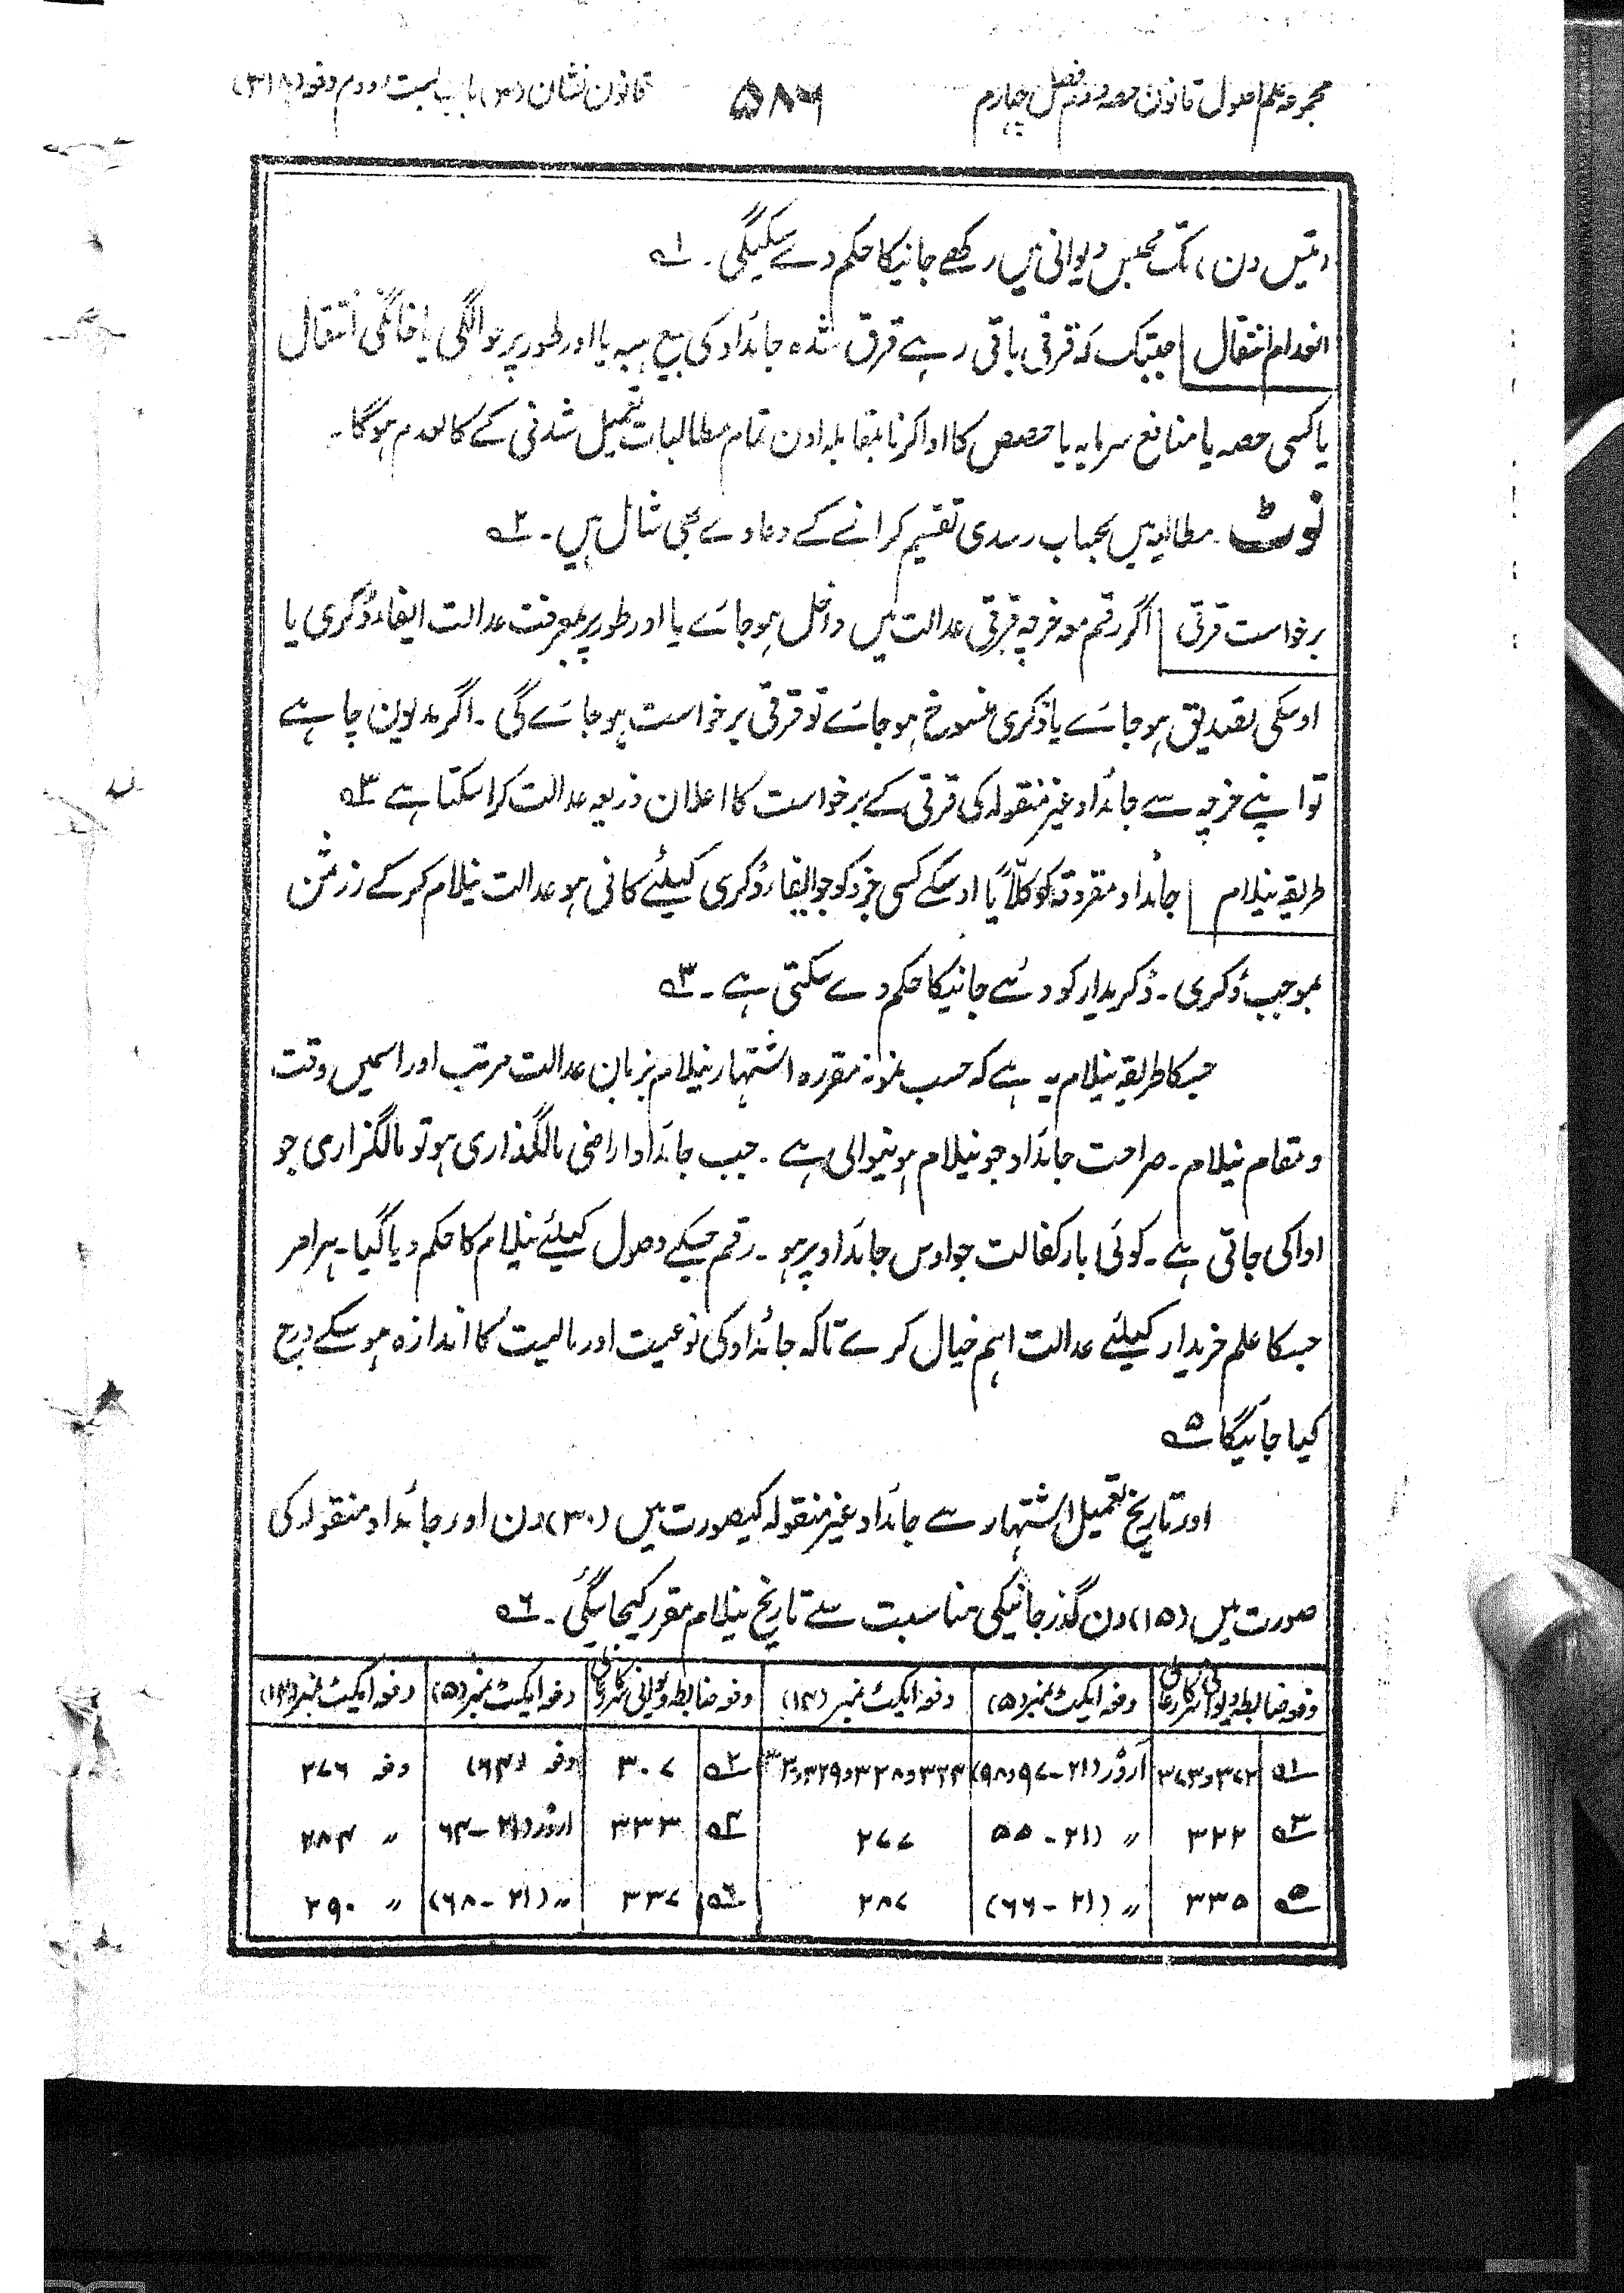 مجموعہ علم اصول قانون حصہ دوم فصل چہارم ۵۸۶ قانون نشان (۳) باب بست و دوم دفعہ (۳۱۸)
(تیس دن) تک محبس دیوانی میں رکھے جانیکا حکم دے سکیگی۔ ۱؎
انعدام انتقال جبتک کہ قرقی باقی رہے قرق شدہ جائداد کی بیع ہبہ یا اور طور پر حوالگی یا خانگی انتقال
یا کسی حصہ یا منافع سرمایہ یا حصص کا ادا کرنا بمقابلہ اون تمام مطالبات تعمیل شدنی کے کالعدم ہوگا۔
نوٹ۔ مطالبہ میں بحساب رسدی تقسیم کرانے کے دعاوے بھی شامل ہیں۔ ۲؎
برخواست قرقی اگر رقم معہ خرچہ قرقی عدالت میں داخل ہو جائے یا اور طور پر بمعرفت عدالت ایفاء ڈگری یا
اوسکی تصدیق ہو جائے یا ڈگری منسوخ ہو جائے تو قرقی برخواست ہو جائے گی۔ اگر مدیون چاہے
تو اپنے خرچہ سے جائداد غیر منقولہ کی قرقی کے برخواست کا اعلان ذریعہ عدالت کرا سکتا ہے ۳؎
طریقہ نیلام جائداد مقروقہ کو کلاً یا اوسکے کسی جزد کو جو ایفاء ڈگری کیلئے کافی ہو عدالت نیلام کر کے زر ثمن
بموجب ڈگری۔ ڈگریدار کو دئے جانیکا حکم دے سکتی ہے۔ ۳؎
جسکا طریقہ نیلام یہ ہے کہ حسب نمونہ مقررہ اشتہار نیلام بزبان عدالت مرتب اور اسمیں وقت
و مقام نیلام۔ صراحت جائداد جو نیلام ہونیوالی ہے۔ جب جائداد اراضی مالگذاری ہو تو مالگزاری جو
ادا کی جاتی ہے۔ کوئی بار کفالت جو اوس جائداد پر ہو۔ رقم جسکے وصول کیلئے نیلام کا حکم دیا گیا۔ ہر امر
جسکا علم خریدار کیلئے عدالت اہم خیال کرے تاکہ جائداد کی نوعیت اور مالیت کا اندازہ ہو سکے درج
کیا جائیگا ۵؎
اور تاریخ تعمیل اشتہار سے جائداد غیر منقولہ کیصورت میں (۳۰) دن اور جائداد منقولہ کی
صورت میں (۱۵) دن گذر جانیکی مناسبت سے تاریخ نیلام مقرر کیجائیگی۔ ۶؎
دفعہ ضابطہ دیوانی سرکارعالی دفعہ ایکٹ نمبر (۵) دفعہ ایکٹ نمبر (۱۴) دفعہ ضابطہ دیوانی سرکارعالی دفعہ ایکٹ نمبر (۵) دفعہ ایکٹ نمبر (۱۴)
۱؎ ۳۷۲و۳۷۳ آرڈر (۲۱-۹۷و۹۸) ۲؎ ۳۰۷ دفعہ (۶۴) دفعہ ۲۷۶
۳؎ ۳۲۲ 〃 (۲۱-۵۵ ۲۷۷ ۴؎ ۳۳۳ آرڈر (۲۱-۶۴ 〃 ۲۸۴
۵؎ ۳۳۵ 〃 (۲۱-۶۶) ۲۸۷ ۶؎ ۳۳۷ 〃 (۲۱-۶۸) 〃 ۲۹۰